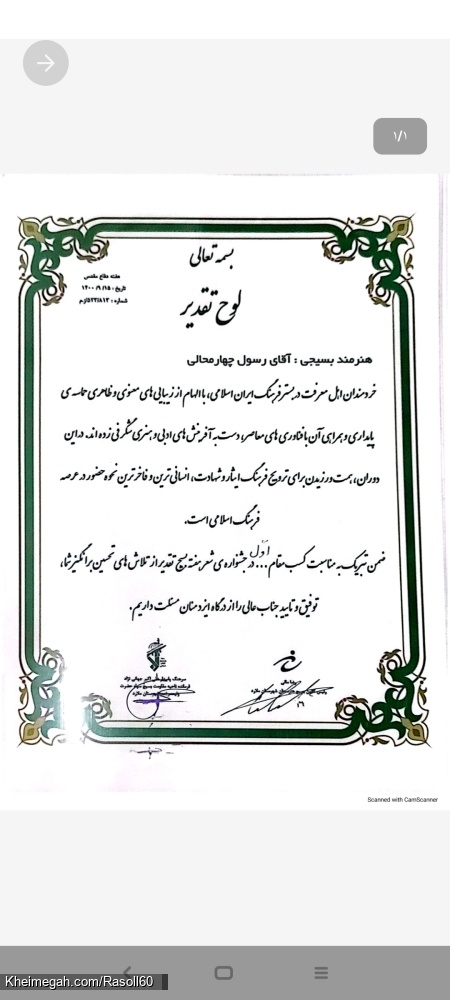 ۱/۱
بسمه تعالی
هفته دفاع مقدس
تاریخ : ۱۴۰۰/۹/۱۵
لوح تقدیر
هنرمند بسیجی : آقای رسول چهارمحالی
خردمندان اهل معرفت در بستر فرهنگ ایران اسلامی، با الهام از زیبایی های معنوی و ظاهری حماسه ی
پایداری و همراهی آن با فناوری های معاصر، دست به آفرینش های ادبی و هنری شگرفی زده اند. در این
دوران، همت ورزیدن برای ترویج فرهنگ ایثار و شهادت، انسانی ترین و فاخرترین نحوه حضور در عرصه
فرهنگ اسلامی است.
ضمن تبریک به مناسبت کسب مقام ... اول در جشنواره ی شعر هفته بسیج تقدیر از تلاش های تحسین برانگیز شما،
توفیق و تایید جناب عالی را از درگاه ایزد منان مسئلت داریم.
Scanned with CamScanner
Kheimegah.com/Rasoll60